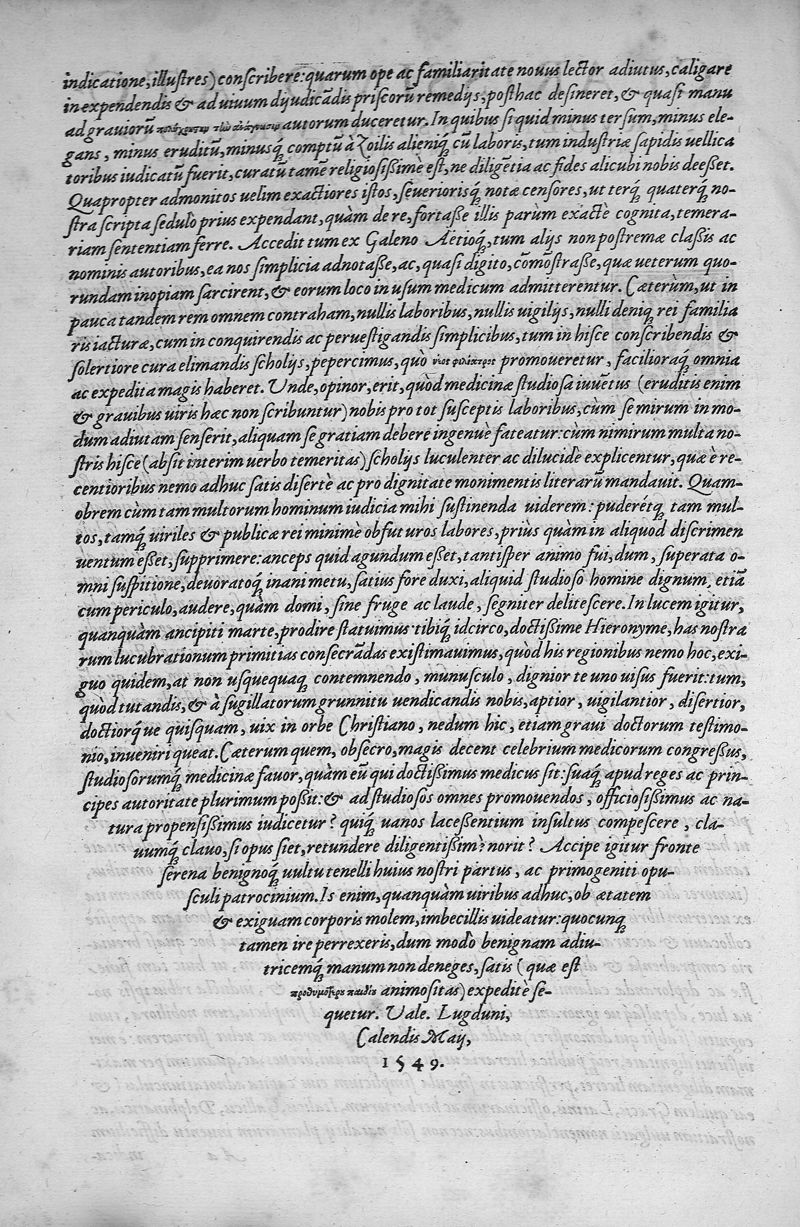 indicatione, illustres) conscribere: quarum ope ac familiaritate nouus lector adiutus, caligare
in expendendis & ad uiuum dijudicãdis priscorũ remedijs, posthac desineret, & quasi manu
ad grauiorũ autorum duceretur. In quibus si quid minus tersum, minus ele-
gans, minus eruditũ, minusq́; comptũ à Zoilis alieniq́; cũ laboris, tum industriæ sapidis uellica
toribus iudicatũ fuerit, curatũ tamẽ religiosißimè est, ne diligẽtia ac fides alicubi nobis deeßet.
Quapropter admonitos uelim exactiores istos, seuerioris q́; notæ censores, ut terq́; quaterq́; no-
stra scripta sedulo prius expendant, quàm de re, fortaße illis parùm exactè cognita, temera-
riam sententiam ferre. Accedit tum ex Galeno Aetioq́;, tum alijs non postremæ claßis ac
nominis autoribus, ea nos simplicia adnotaße, ac, quasi digito, cõmõstraße, quæ ueterum quo-
rundam inopiam sarcirent, & eorum loco in usum medicum admitterentur. Cæterùm, ut in
pauca tandem rem omnem contraham, nullis laboribus, nullis uigilijs, nulli deniq́; rei familia
ris iacturæ, cum in conquirendis ac peruestigandis simplicibus, tum in hisce conscribendis &
solertiore cura elimandis scholijs, pepercimus, quò promoueretur, facilioraq́; omnia
ac expedita magis haberet. Unde, opinor, erit, quòd medicinæ studiosa iuuẽtus (eruditis enim
& grauibus uiris hæc non scribuntur) nobis pro tot susceptis laboribus, cùm se mirum in mo-
dum adiutam senserit, aliquam se gratiam debere ingenuè fateatur: cùm nimirum multa no-
stris hisce (absit interim uerbo temeritas) scholijs luculenter ac dilucidè explicentur, quæ è re-
centioribus nemo adhuc satis disertè ac pro dignitate monimentis literarũ mandauit. Quam-
obrem cùm tam multorum hominum iudicia mihi sustinenda uiderem: puderétq́; tam mul-
tos, tamq́; uiriles & publicæ rei minimè obfuturos labores, priùs quàm in aliquod discrimen
uentum eßet, supprimere: anceps quid agundum eßet, tantisper animo fui, dum, superata o-
mni suspitione, deuoratoq́; inani metu, satius fore duxi, aliquid studioso homine dignum, etiã
cum periculo, audere, quàm domi, sine fruge ac laude, segniter delitescere. In lucem igitur,
quanquàm ancipiti marte, prodire statuimus: tibiq́; idcirco, doctißime Hieronyme, has nostra
rum lucubrationum primitias consecrãdas existimauimus, quòd his regionibus nemo hoc, exi-
guo quidem, at non usquequaq; contemnendo, munusculo, dignior te uno uisus fuerit: tum,
quòd tutandis, & à sugillatorum grunnitu uendicandis nobis, aptior, uigilantior, disertior,
doctiorque quisquam, uix in orbe Christiano, nedum hic, etiam graui doctorum testimo-
nio, inueniri queat. Cæterum quem, obsecro, magis decent celebrium medicorum congreßus,
studiosorumq́; medicinæ fauor, quàm eũ qui doctißimus medicus sit: suaq́; apud reges ac prin-
cipes autoritate plurimum poßit: & ad studiosos omnes promouendos, officiosißimus ac na-
tura propensißimus iudicetur? quiq́; uanos laceßentium insultus compescere, cla-
uumq́; clauo, si opus siet, retundere diligentißimè norit? Accipe igitur fronte
serena benignoq́; uultu tenelli huius nostri partus, ac primogeniti opu-
sculi patrocinium. Is enim, quanquàm uiribus adhuc, ob ætatem
& exiguam corporis molem, imbecillis uideatur: quocunq;
tamen ire perrexeris, dum modò benignam adiu-
tricemq́; manum non deneges, satis (quæ est
animositas) expeditè se-
quetur. Vale. Lugduni,
Calendis Maij,
1549.